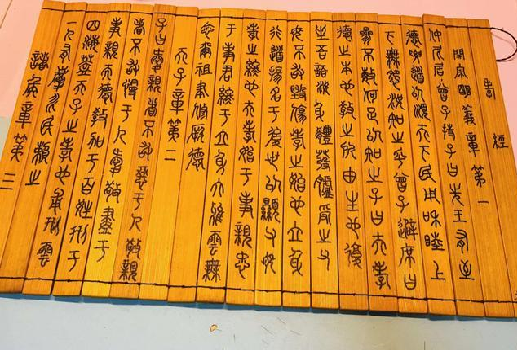 孝經
開宗明義章第一
仲尼居曾子侍子曰先王有至
德要道以順天下民用和睦上
下無怨汝知之乎曾子避席曰
參不敏何足以知之子曰夫孝
德之本也教之所由生也復
坐吾語汝身體髮膚受之父
母不敢毀傷孝之始也立身
行道揚名于後世以顯父母
孝之終也夫孝始于事親中
于事君終于立身大雅云無
念爾祖聿脩厥德
天子章第二
子曰愛親者不敢惡于人敬親
者不敢慢于人愛敬盡于
事親而德教加于百姓刑于
四海蓋天子之孝也甫刑云
一人有慶兆民賴之
諸侯章第三